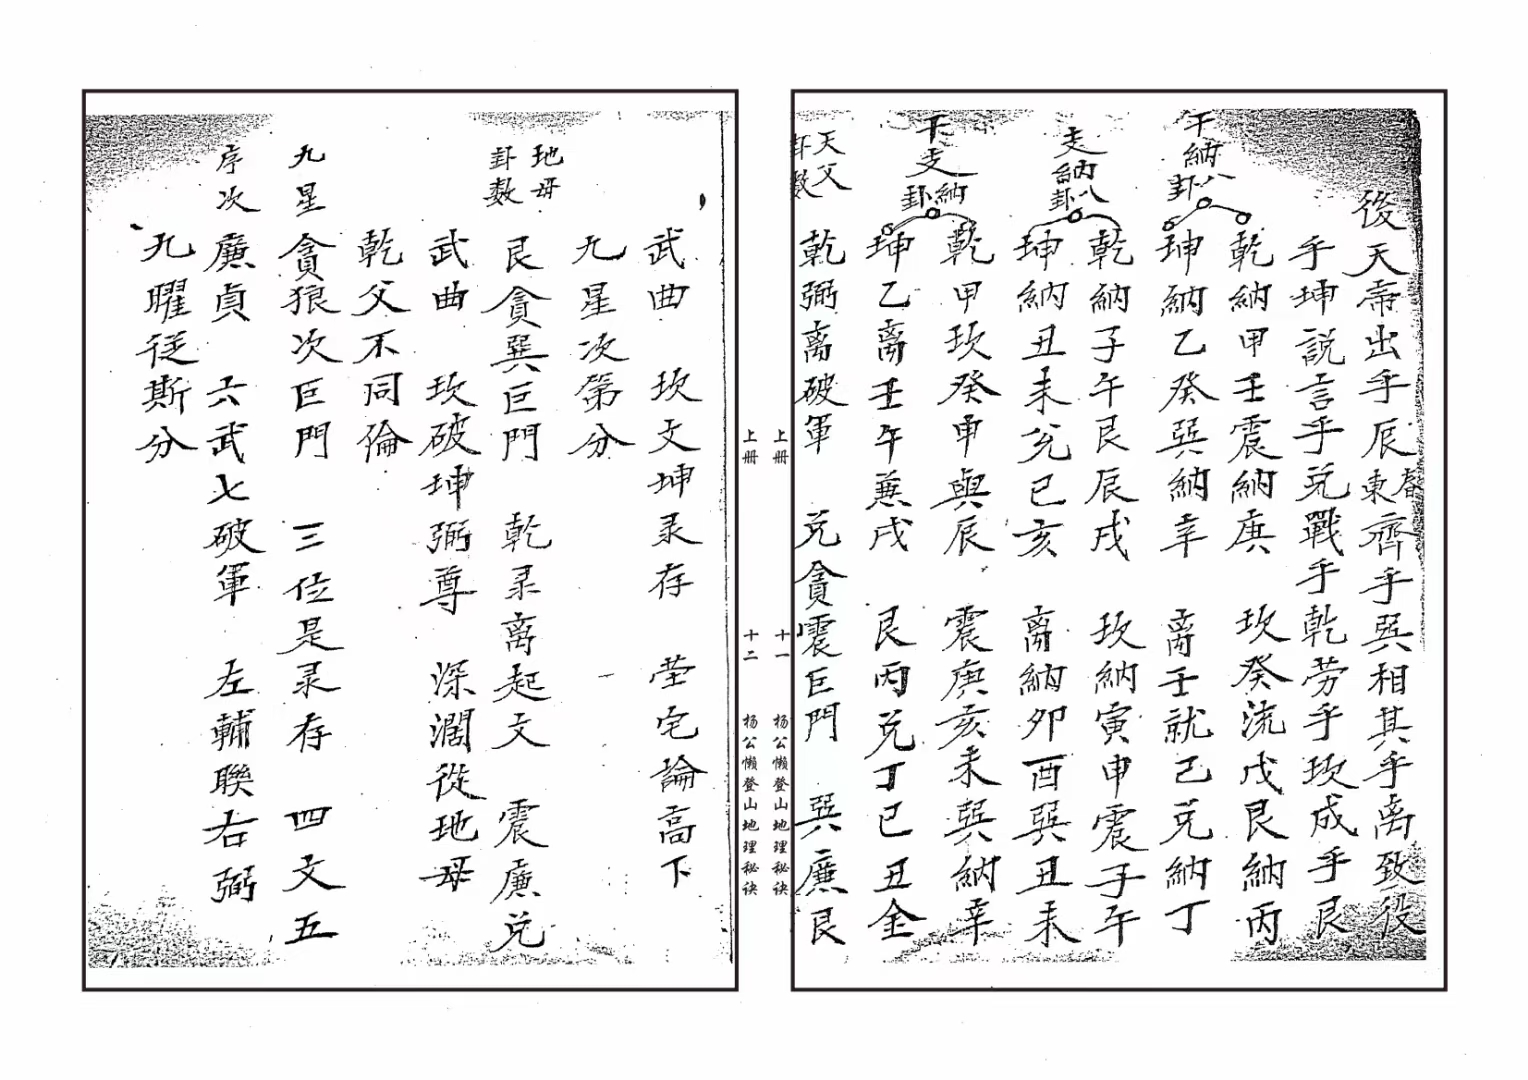 後天帝出乎辰東齊乎巽相其乎离致役
乎坤説言乎兑戰乎乾劳乎坎成乎艮
干納八卦
乾納甲壬震納庚 坎癸流戊艮納丙
坤納乙癸巽納辛 离壬就己兑納丁
支納八卦
乾納子午艮辰戌 坎納寅申震子午
坤納丑未兑巳亥 离納卯酉巽丑未
干支納卦
乾甲坎癸申與辰 震庚亥未巽納辛
坤乙离壬午兼戌 艮丙兑丁巳丑金
天父卦數
乾弼离破軍 兑貪震巨門 巽廉艮
上册 十一 杨公懒登山地理秘诀
上册 十二 杨公懒登山地理秘诀
武曲 坎文坤彔存 茔宅論高下
九星次第分
地母卦数
艮貪巽巨門 乾彔离起文 震廉兑
武曲 坎破坤弼尊 深濶從地母
乾父不同倫
九星序次
貪狼次巨門 三位是彔存 四文五
廉貞 六武七破軍 左輔聯右弼
九曜従斯分